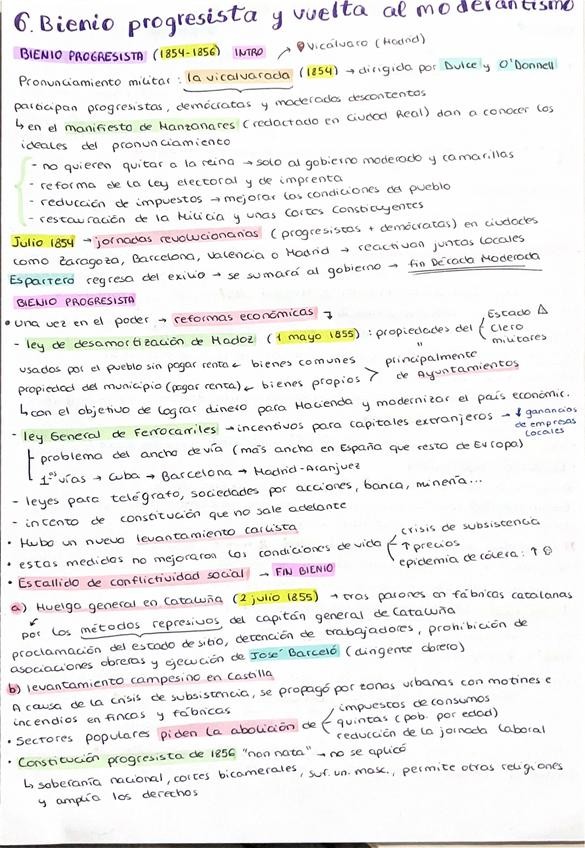 6. Bienio progresista y vuelta al moderantismo
BIENIO PROGRESISTA (1854-1856) INTRO → Vicálvaro (Madrid)
Pronunciamiento militar: la vicalvarada (1854) → dirigida por Dulce y O'Donnell
participan progresistas, demócratas y moderados descontentos
↳ en el manifiesto de Manzanares (redactado en Ciudad Real) dan a conocer los
ideales del pronunciamiento
- no quieren quitar a la reina → solo al gobierno moderado y camarillas
- reforma de la ley electoral y de imprenta
- reducción de impuestos → mejorar las condiciones del pueblo
- restauración de la Milicia y unas Cortes Constituyentes
Julio 1854 → jornadas revolucionarias (progresistas + demócratas) en ciudades
como Zaragoza, Barcelona, Valencia o Madrid → reactivan juntas locales
Espartero regresa del exilio → se sumará al gobierno → fin Década Moderada
BIENIO PROGRESISTA
• Una vez en el poder → reformas económicas ↴
- ley de desamortización de Madoz (1 mayo 1855): propiedades del
Estado Δ
Clero
militares
usados por el pueblo sin pagar renta ← bienes comunes
propiedad del municipio (pagar renta) ← bienes propios >
" principalmente
de Ayuntamientos
↳ con el objetivo de lograr dinero para Hacienda y modernizar el país económic.
- ley General de Ferrocarriles → incentivos para capitales extranjeros → ↓ ganancias
de empresas
locales
problema del ancho de vía (más ancho en España que resto de Europa)
1ᵃˢ vías → Cuba → Barcelona → Madrid-Aranjuez
- leyes para telégrafo, sociedades por acciones, banca, minería...
- intento de constitución que no sale adelante
• Hubo un nuevo levantamiento carlista
• estas medidas no mejoraron las condiciones de vida
crisis de subsistencia
↑ precios
epidemia de cólera: ↑
• Estallido de conflictividad social → FIN BIENIO
a) Huelga general en Cataluña (2 julio 1855) → tras parones en fábricas catalanas
por los métodos represivos del capitán general de Cataluña
proclamación del estado de sitio, detención de trabajadores, prohibición de
asociaciones obreras y ejecución de José Barceló (dirigente obrero)
b) levantamiento campesino en Castilla
A causa de la crisis de subsistencia, se propagó por zonas urbanas con motines e
incendios en fincas y fábricas
• Sectores populares piden la abolición de
impuestos de consumos
quintas (pob. por edad)
reducción de la jornada laboral
• Constitución progresista de 1856 "non nata" → no se aplicó
↳ soberanía nacional, cortes bicamerales, suf. un. masc., permite otras religiones
y amplía los derechos